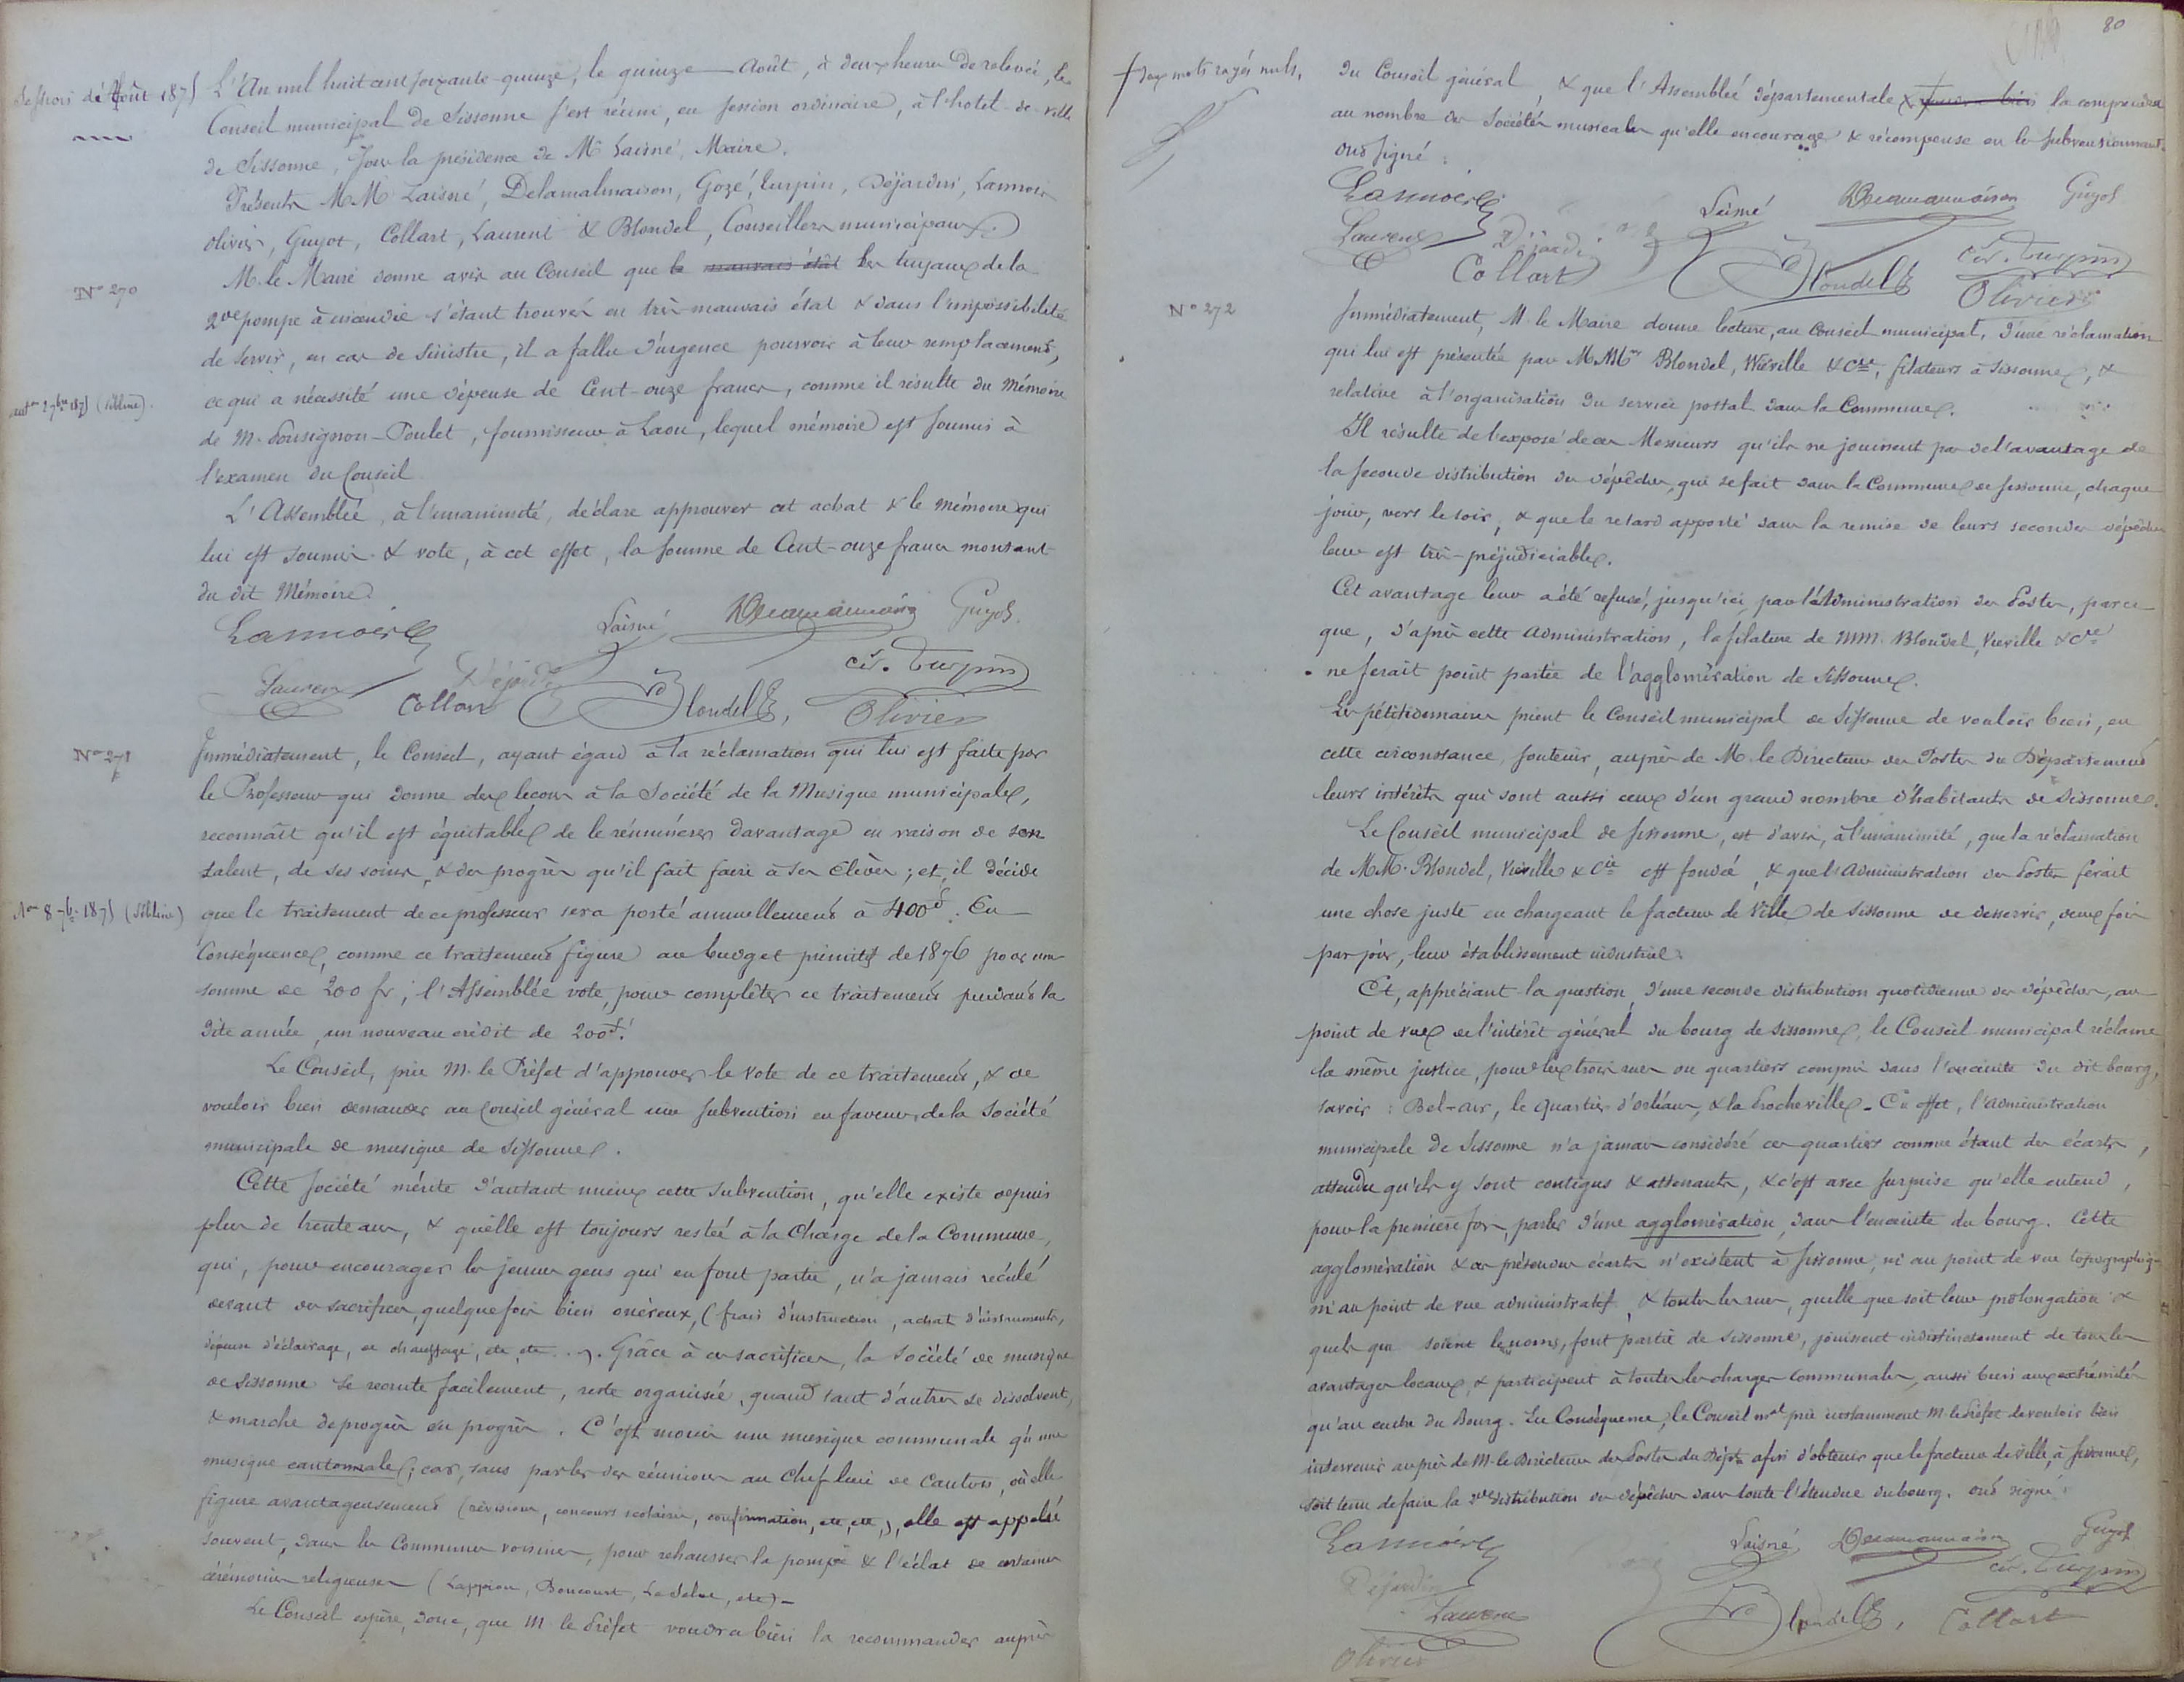 Session d'Août 1875
L'An mil huit cent soixante-quinze, le quinze Août, à deux heures de relevée, le
Conseil municipal de Sissonne s'est réuni, en session ordinaire, à l'hotel-de-ville
de Sissonne, sous la présidence de Mr Laisné, Maire.
Présents M.M. Laisné, Delamalmaison, Gozé, Turpin, Déjardin, Lannois
Olivier, Guyot, Collart, Laurent & Blondel, Conseillers municipaux.
No 270
M. le Maire donne avis au Conseil que le mauvais état les tuyaux de la
2me pompe à incendie s'étant trouvés en très mauvais état & dans l'impossibilité
de servir, en cas de sinistre, il a fallu d'urgence pourvoir à leur remplacement,
ce qui a nécessité une dépense de Cent-onze francs, comme il résulte du Mémoire
de M. -Poulet, fournisseur à Laon, lequel mémoire est soumis à
l'examen du Conseil
L'Assemblée, à l'unanimité, déclare approuver cet achat & le mémoire qui
lui est soumis & vote, à cet effet, la somme de Cent-onze francs montant
du dit Mémoire.
Lannois Laisné Delamalmaison Guyot
Laurent Déjardin Collart Blondel Cés. Turpin Olivier
No 271
Immédiatement, le Conseil, ayant égard à la réclamation qui lui est faite par
le Professeur qui donne des leçons à la Société de la Musique municipale,
reconnaît qu'il est équitable de le rémunérer davantage en raison de son
talent, de ses soins, & des progrès qu'il fait faire à ses Elèves; et, il décide
que le traitement de ce professeur sera porté annuellement à 400f. En
Conséquence, comme ce traitement figure au budget primitif de 1876 pour une
somme de 200 fr, l'Assemblée vote, pour compléter ce traitement pendant la
dite année, un nouveau crédit de 200f.
Le Conseil, prie M. le Préfet d'approuver le vote de ce traitement, & de
vouloir bien demander au Conseil général une subvention en faveur de la Société
municipale de musique de Sissonne.
Cette société mérite d'autant mieux cette subvention, qu'elle existe depuis
plus de trente ans, & qu'elle est toujours restée à la charge de la Commune,
qui, pour encourager les jeunes gens qui en font partie, n'a jamais reculé
devant des sacrifices, quelquefois bien onéreux, (frais d'instruction, achat d'instruments,
dépenses d'éclairage, de chauffage, etc, etc ...). Grâce à ces sacrifices, la Société de musique
de Sissonne se recrute facilement, reste organisée, quand tant d'autres se dissolvent,
& marche de progrès en progrès. C'est moins une musique communale qu'une
musique cantonale; car, sans parler des réunions au Chef lieu de Canton, où elle
figure avantageusement (révisions, concours scolaires, confirmation, etc, etc,), elle est appelée
souvent, dans les Communes voisines, pour rehausser la pompe & l'éclat de certaines
cérémonies religieuses (Lappion, Boncourt, La Selve, etc) -
Le Conseil espère, donc, que M. le Préfet voudra bien la recommander auprès
80
deux mots rayés nuls.
du Conseil général, & que l'Assemblée départementale voudra bien la comprendre
au nombre des Sociétés musicales qu'elle encourage & récompense en les subventionnant.
Ont signé :
Lannois Laisné Delamalmaison Guyot
Laurent Déjardin Collart Blondel Cés. Turpin Olivier
No 272
Immédiatement, M. le Maire donne lecture, au Conseil municipal, d'une réclamation
qui lui est présentée par M.M. Blondel, Viéville & Cie, filateurs à Sissonne, &
relative à l'organisation du service postal dans la Commune.
Il résulte de l'exposé de ces Messieurs qu'ils ne jouissent pas de l'avantage de
la seconde distribution des dépêches, qui se fait dans la Commune de Sissonne, chaque
jour, vers le soir, & que le retard apporté dans la remise de leurs secondes dépêches
leur est très-préjudiciable.
Cet avantage leur a été refusé, jusqu'ici, par l'Administration des Postes, parce
que, d'après cette Administration, la filature de MM. Blondel, Viéville & Cie
ne ferait point partie de l'agglomération de Sissonne.
Les pétitionnaires prient le Conseil municipal de Sissonne de vouloir bien, en
cette circonstance, soutenir, auprès de M. le Directeur des Postes du Département
leurs intérêts qui sont aussi ceux d'un grand nombre d'habitants de Sissonne.
Le Conseil municipal de Sissonne, est d'avis, à l'unanimité, que la réclamation
de M.M. Blondel, Viéville & Cie est fondée, & que l'Administration des Postes ferait
une chose juste en chargeant le facteur de Ville de Sissonne de desservir, deux fois
par jour, leur établissement industriel.
Et, appréciant la question d'une seconde distribution quotidienne des dépêches, au
point de vue de l'intérêt général du bourg de Sissonne, le Conseil municipal réclame
la même justice, pour les trois rues ou quartiers compris dans l'enceinte du dit bourg,
savoir : Bel-air, le Quartier d'Orléans, & la . En effet, l'administration
municipale de Sissonne n'a jamais considéré ces quartiers comme étant des écarts,
attendu qu'ils y sont contigus & attenants, & c'est avec surprise qu'elle entend,
pour la première fois, parler d'une agglomération, dans l'enceinte du bourg. Cette
agglomération & ces prétendus écarts n'existent à Sissonne, ni au point de vue topographique
ni au point de vue administratif, & toutes les rues, quelle que soit leur prolongation &
quels que soient les noms, font partie de Sissonne, jouissent indistinctement de tous les
avantages locaux, & participent à toutes les charges communales, aussi bien aux extrémités
qu'au centre du Bourg. En Conséquence, le Conseil mal prie instamment M. le Préfet de vouloir bien
intervenir auprès de M. le Directeur des Postes du Dépt afin d'obtenir que le facteur de ville, à Sissonne,
soit tenu de faire la 2me distribution des dépêches dans toute l'étendue du bourg. Ont signé :
Lannois Laisné Delamalmaison Guyot
Déjardin Laurent Blondel Cés. Turpin Collart
Olivier